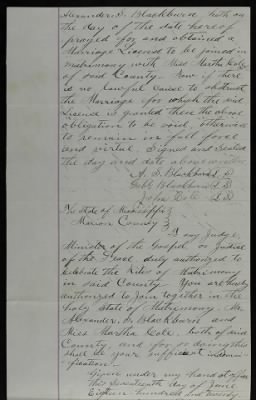 Alexander S. Blackburn hath on
the day of the date hereof
prayed for and obtained a
Marriage License to be joined in
matrimony with Miss Martha Cole
of said County. Now if there
is no lawful cause to obstruct
the Marriage for which the said
License is granted then the above
obligation to be void, otherwise
to remain in full force
and virtue. Signed and Sealed
the day and date above written
A. S. Blackburn L.S.
Blackburn L.S.
John Cole L.S.
The State of Mississippi }
Marion County }
To any Judge,
Minister of the Gospel or Justice
of the Peace duly authorized to
celebrate the Rites of Matrimony
in said County. You are hereby
authorized to join together in the
holy State of Matrimony, Mr
Alexander S. Blackburn and
Miss Martha Cole, both of said
County, and for so doing this
shall be your sufficient
Given under my hand at office
this Seventeenth day of June
Eighteen hundred and